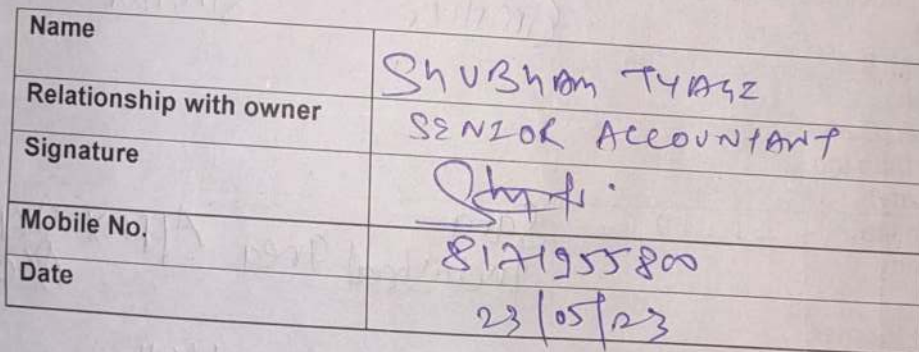 Name SHUBHAM TYAGI
Relationship with owner SENIOR ACCOUNTANT
Signature
Mobile No. 8171955800
Date 23/05/23